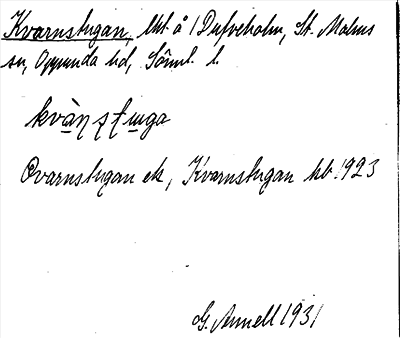 Kvarnstugan, lht å 1 Dufveholm, St. Malms
sn, Oppunda hd, Söml. l.
kvàṇṣṭu̲ga
Qvarnstugan ek, Kvarnstugan hb. 1923
G. Annell 1931